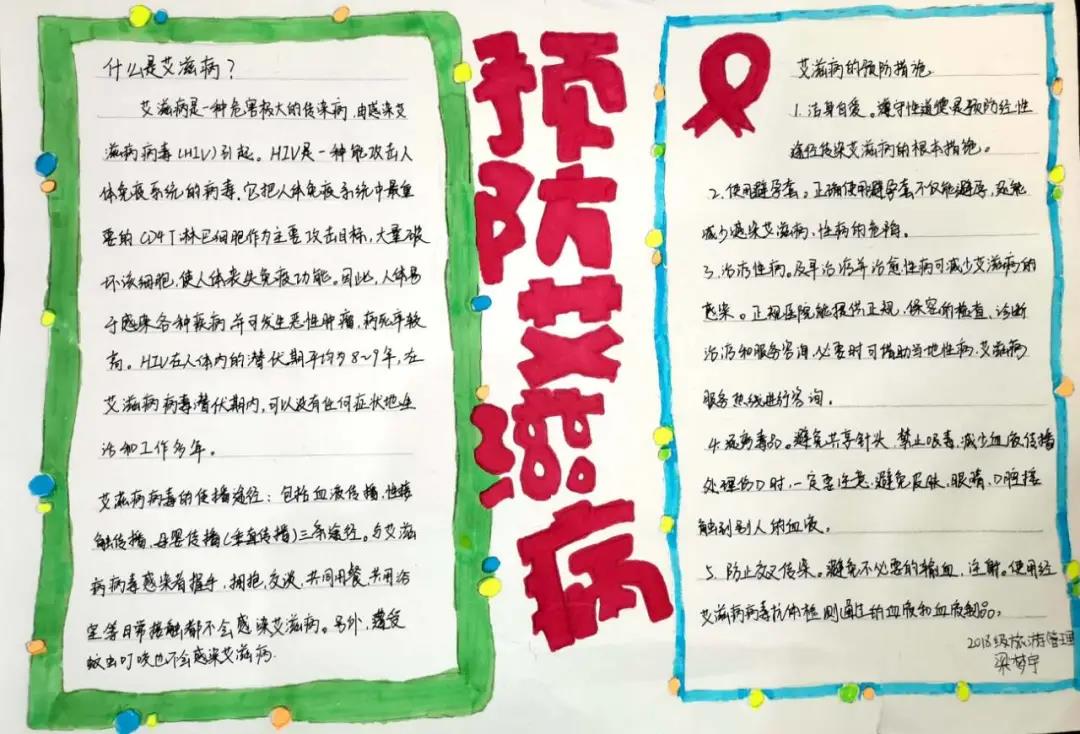 什么是艾滋病？
艾滋病是一种危害极大的传染病，由感染艾
滋病病毒(HIV)引起。HIV是一种能攻击人
体免疫系统的病毒。它把人体免疫系统中最重
要的CD4T淋巴细胞作为主要攻击目标，大量破
坏该细胞，使人体丧失免疫功能。因此，人体易
于感染各种疾病，并可发生恶性肿瘤，病死率较
高。HIV在人体内的潜伏期平均为8~9年，在
艾滋病病毒潜伏期内，可以没有任何症状地生
活和工作多年。
艾滋病病毒的传播途径：包括血液传播，性接
触传播，母婴传播(垂直传播)三条途径。与艾滋
病病毒感染者握手，拥抱，交谈，共同用餐，共用浴
室等日常接触都不会感染艾滋病。另外，遭受
蚊虫叮咬也不会感染艾滋病.
预防艾滋病
艾滋病的预防措施
1. 洁身自爱。遵守性道德是预防经性
途径传染艾滋病的根本措施。
2. 使用避孕套。正确使用避孕套不仅能避孕，还能
减少感染艾滋病，性病的危险。
3. 治疗性病。及早治疗并治愈性病可减少艾滋病的
感染。正规医院能提供正规，保密的检查、诊断
治疗和服务咨询，必要时可借助当地性病、艾滋病
服务热线进行咨询.
4. 毒品。避免共享针头，禁止吸毒，减少血液传播
处理伤口时，一定要注意，避免皮肤，眼睛，口腔接
触到别人的血液。
5. 防止交叉传染。避免不必要的输血，注射。使用经
艾滋病病毒抗体检测通过的血液和血液制品。
2018级旅游管理
梁梦宇